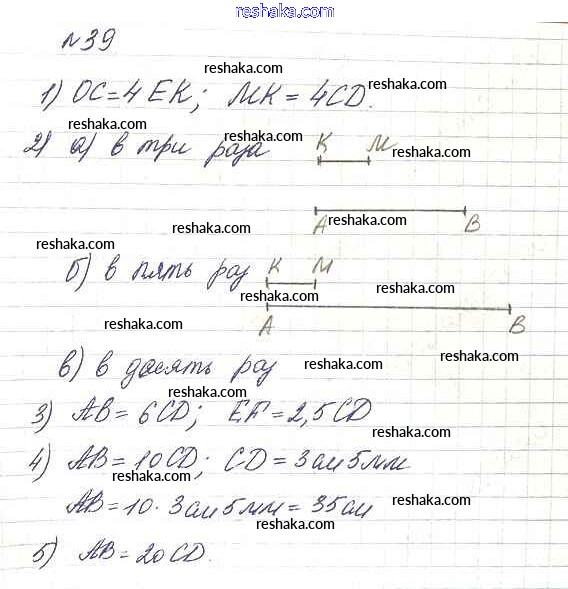 www.reshaka.com
№39
reshaka.com
1) OC=4EK; MK=4CD.
reshaka.com
reshaka.com reshaka.com
2) а) в три раза K M
reshaka.com
reshaka.com reshaka.com
A B
reshaka.com
б) в пять раз K M
reshaka.com reshaka.com
reshaka.com A B
reshaka.com
в) в десять раз reshaka.com
reshaka.com
3) AB=6CD; EF=2,5CD
reshaka.com
4) AB=10CD; CD=3см5мм
reshaka.com
AB=10·3см5мм=35см
reshaka.com
reshaka.com
5) AB=20CD.
reshaka.com